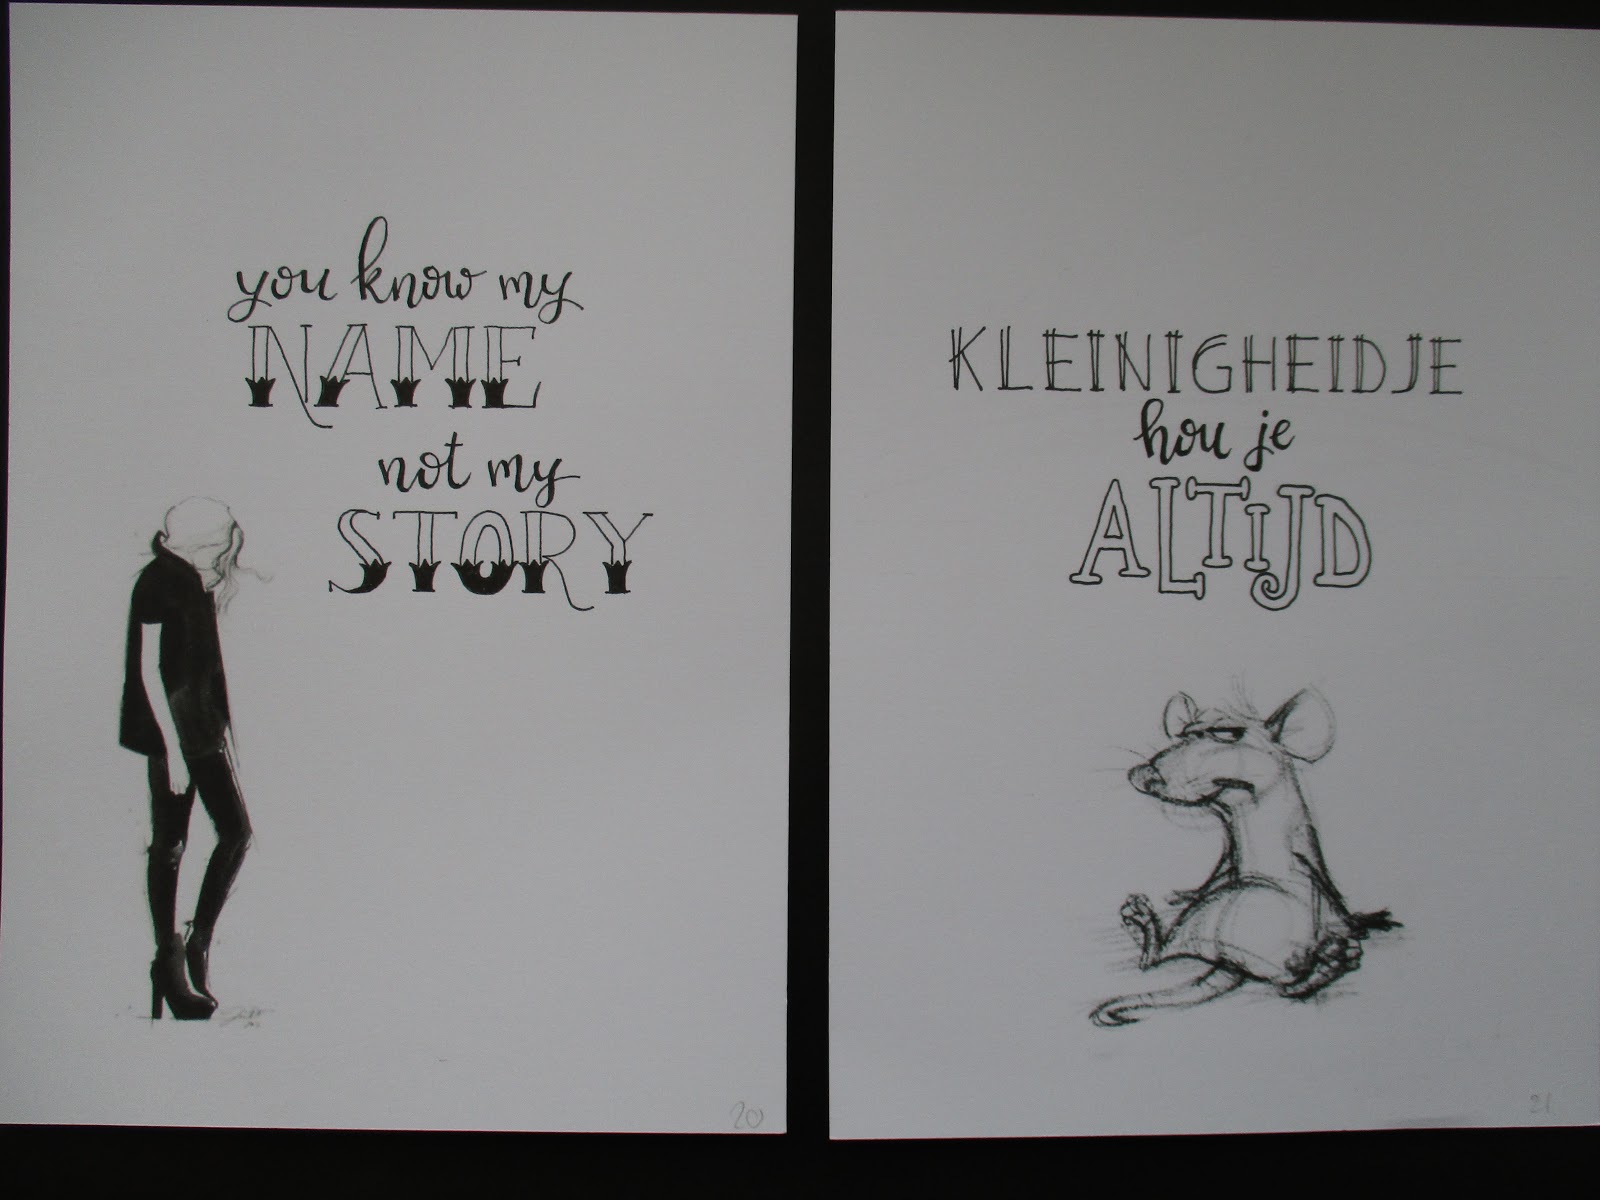 you know my
NAME
not my
STORY
20
KLEINIGHEIDJE
hou je
ALTIJD
21